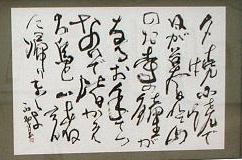 夕焼小焼で
日が暮れて山
のお寺の鐘が
なるお手々つ
ないで皆かえ
ろ烏と一緒
に帰りましょう